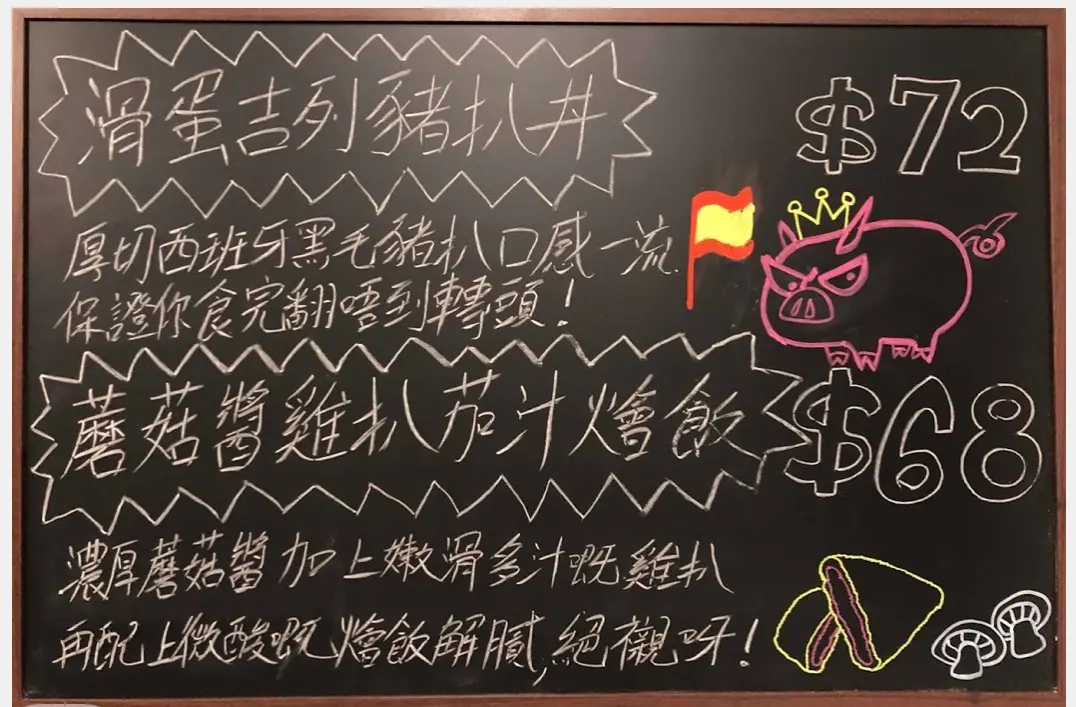 滑蛋吉列豬扒丼 $72
厚切西班牙黑毛豬扒口感一流
保證你食完翻唔到轉頭！
蘑菇醬雞扒茄汁燴飯 $68
濃厚蘑菇醬加上嫩滑多汁嘅雞扒
再配上微酸嘅燴飯解膩,絕襯呀！